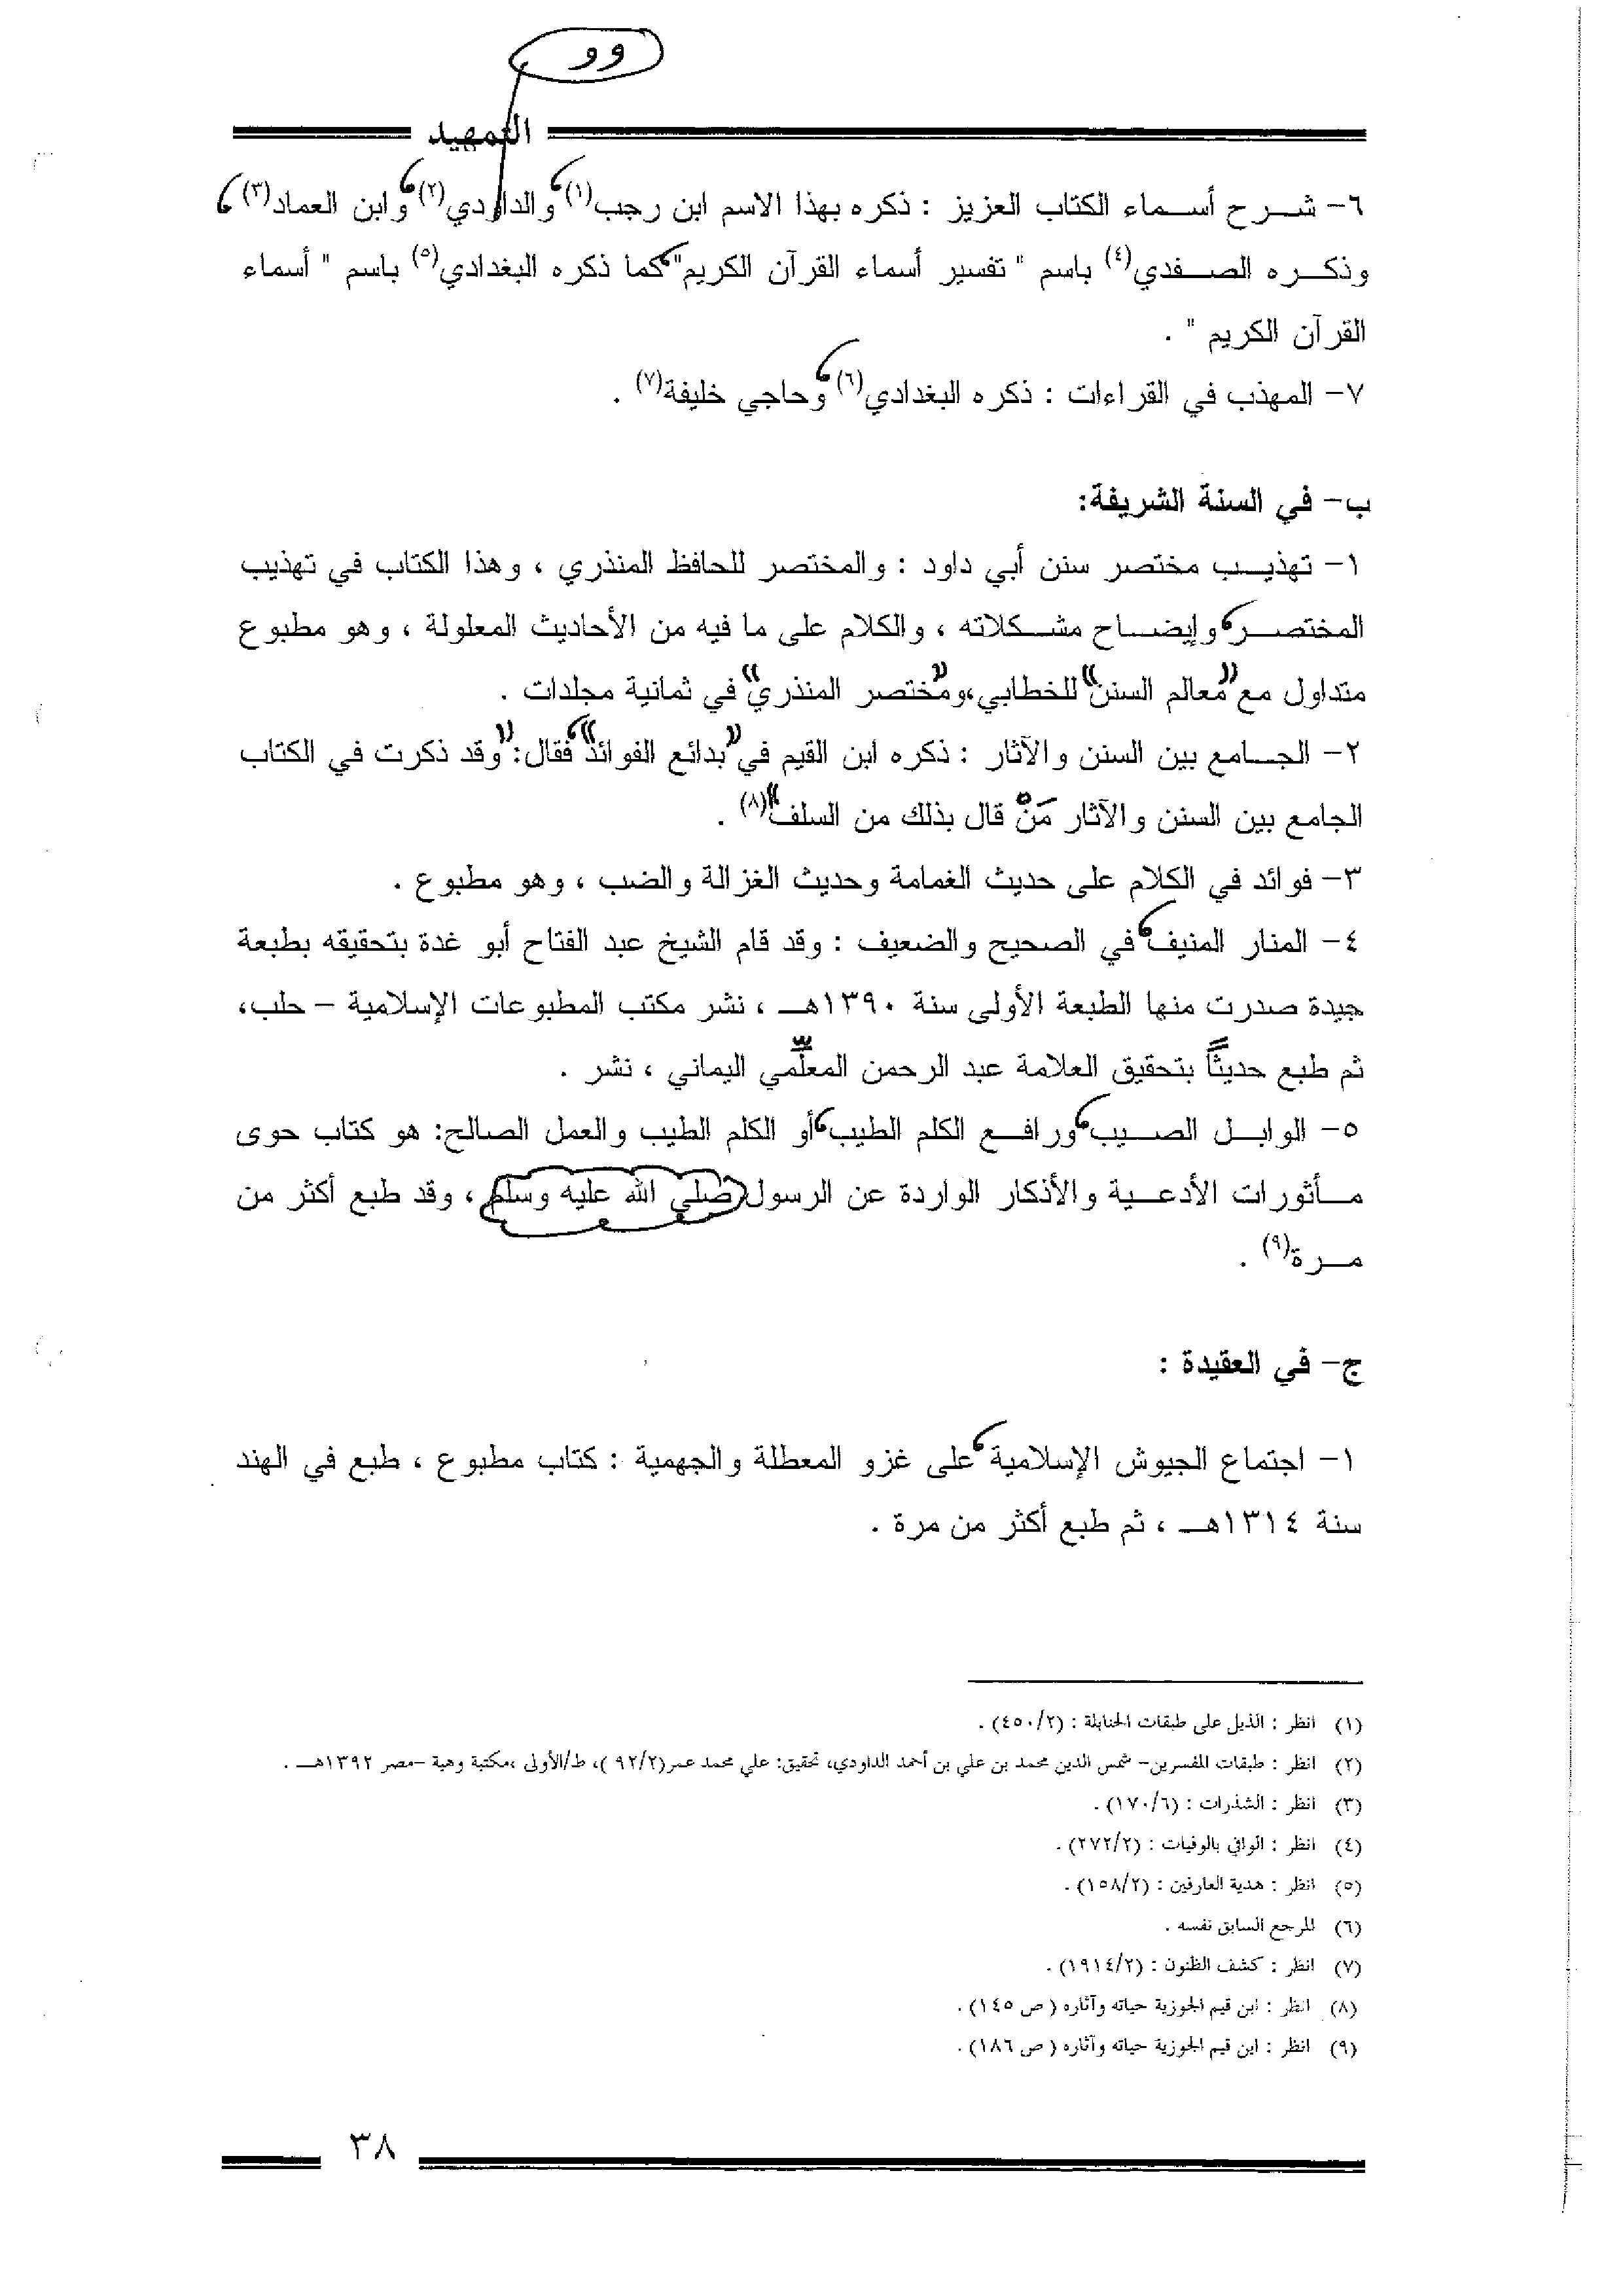 وو
التمهيد
٦- شرح أسماء الكتاب العزيز : ذكره بهذا الاسم ابن رجب(١)، والداودي(٢)، وابن العماد(٣)،
وذكره الصفدي(٤) باسم " تفسير أسماء القرآن الكريم"، كما ذكره البغدادي(٥) باسم " أسماء
القرآن الكريم " .
٧- المهذب في القراءات : ذكره البغدادي(٦)، وحاجي خليفة(٧) .
ب- في السنة الشريفة:
١- تهذيب مختصر سنن أبي داود : والمختصر للحافظ المنذري ، وهذا الكتاب في تهذيب
المختصر، وإيضاح مشكلاته ، والكلام على ما فيه من الأحاديث المعلولة ، وهو مطبوع
متداول مع "معالم السنن" للخطابي، و"مختصر المنذري" في ثمانية مجلدات .
٢- الجامع بين السنن والآثار : ذكره ابن القيم في "بدائع الفوائد"، فقال: "وقد ذكرت في الكتاب
الجامع بين السنن والآثار مَنْ قال بذلك من السلف"(٨) .
٣- فوائد في الكلام على حديث الغمامة وحديث الغزالة والضب ، وهو مطبوع .
٤- المنار المنيف، في الصحيح والضعيف : وقد قام الشيخ عبد الفتاح أبو غدة بتحقيقه بطبعة
جيدة صدرت منها الطبعة الأولى سنة ١٣٩٠هـ ، نشر مكتب المطبوعات الإسلامية – حلب،
ثم طبع حديثًا بتحقيق العلامة عبد الرحمن المعلّمي اليماني ، نشر .
٥- الوابل الصيب، ورافع الكلم الطيب، أو الكلم الطيب والعمل الصالح: هو كتاب حوى
مأثورات الأدعية والأذكار الواردة عن الرسول صلى الله عليه وسلم ، وقد طبع أكثر من
مرة(٩) .
ج- في العقيدة :
١- اجتماع الجيوش الإسلامية، على غزو المعطلة والجهمية : كتاب مطبوع ، طبع في الهند
سنة ١٣١٤هـ ، ثم طبع أكثر من مرة .
(١) انظر : الذيل على طبقات الحنابلة : (٤٥٠/٢) .
(٢) انظر : طبقات المفسرين- شمس الدين محمد بن علي بن أحمد الداودي، تحقيق: علي محمد عمر(٩٢/٢ )، ط/الأولى ،مكتبة وهبة -مصر ١٣٩٢هـ .
(٣) انظر : الشذرات : (١٧٠/٦) .
(٤) انظر : الوافي بالوفيات : (٢٧٢/٢) .
(٥) انظر : هدية العارفين : (١٥٨/٢) .
(٦) المرجع السابق نفسه .
(٧) انظر : كشف الظنون : (١٩١٤/٢) .
(٨) انظر : ابن قيم الجوزية حياته وآثاره ( ص ١٤٥) .
(٩) انظر : ابن قيم الجوزية حياته وآثاره ( ص ١٨٦) .
٣٨